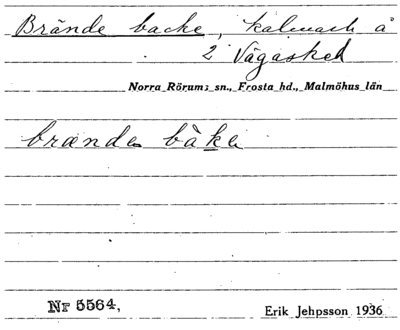 Brände backe, kalmark å
2 Vägasked
Norra Rörums sn., Frosta hd., Malmöhus län
brænde bàke
Nr 5564,
Erik Jehpsson 1936